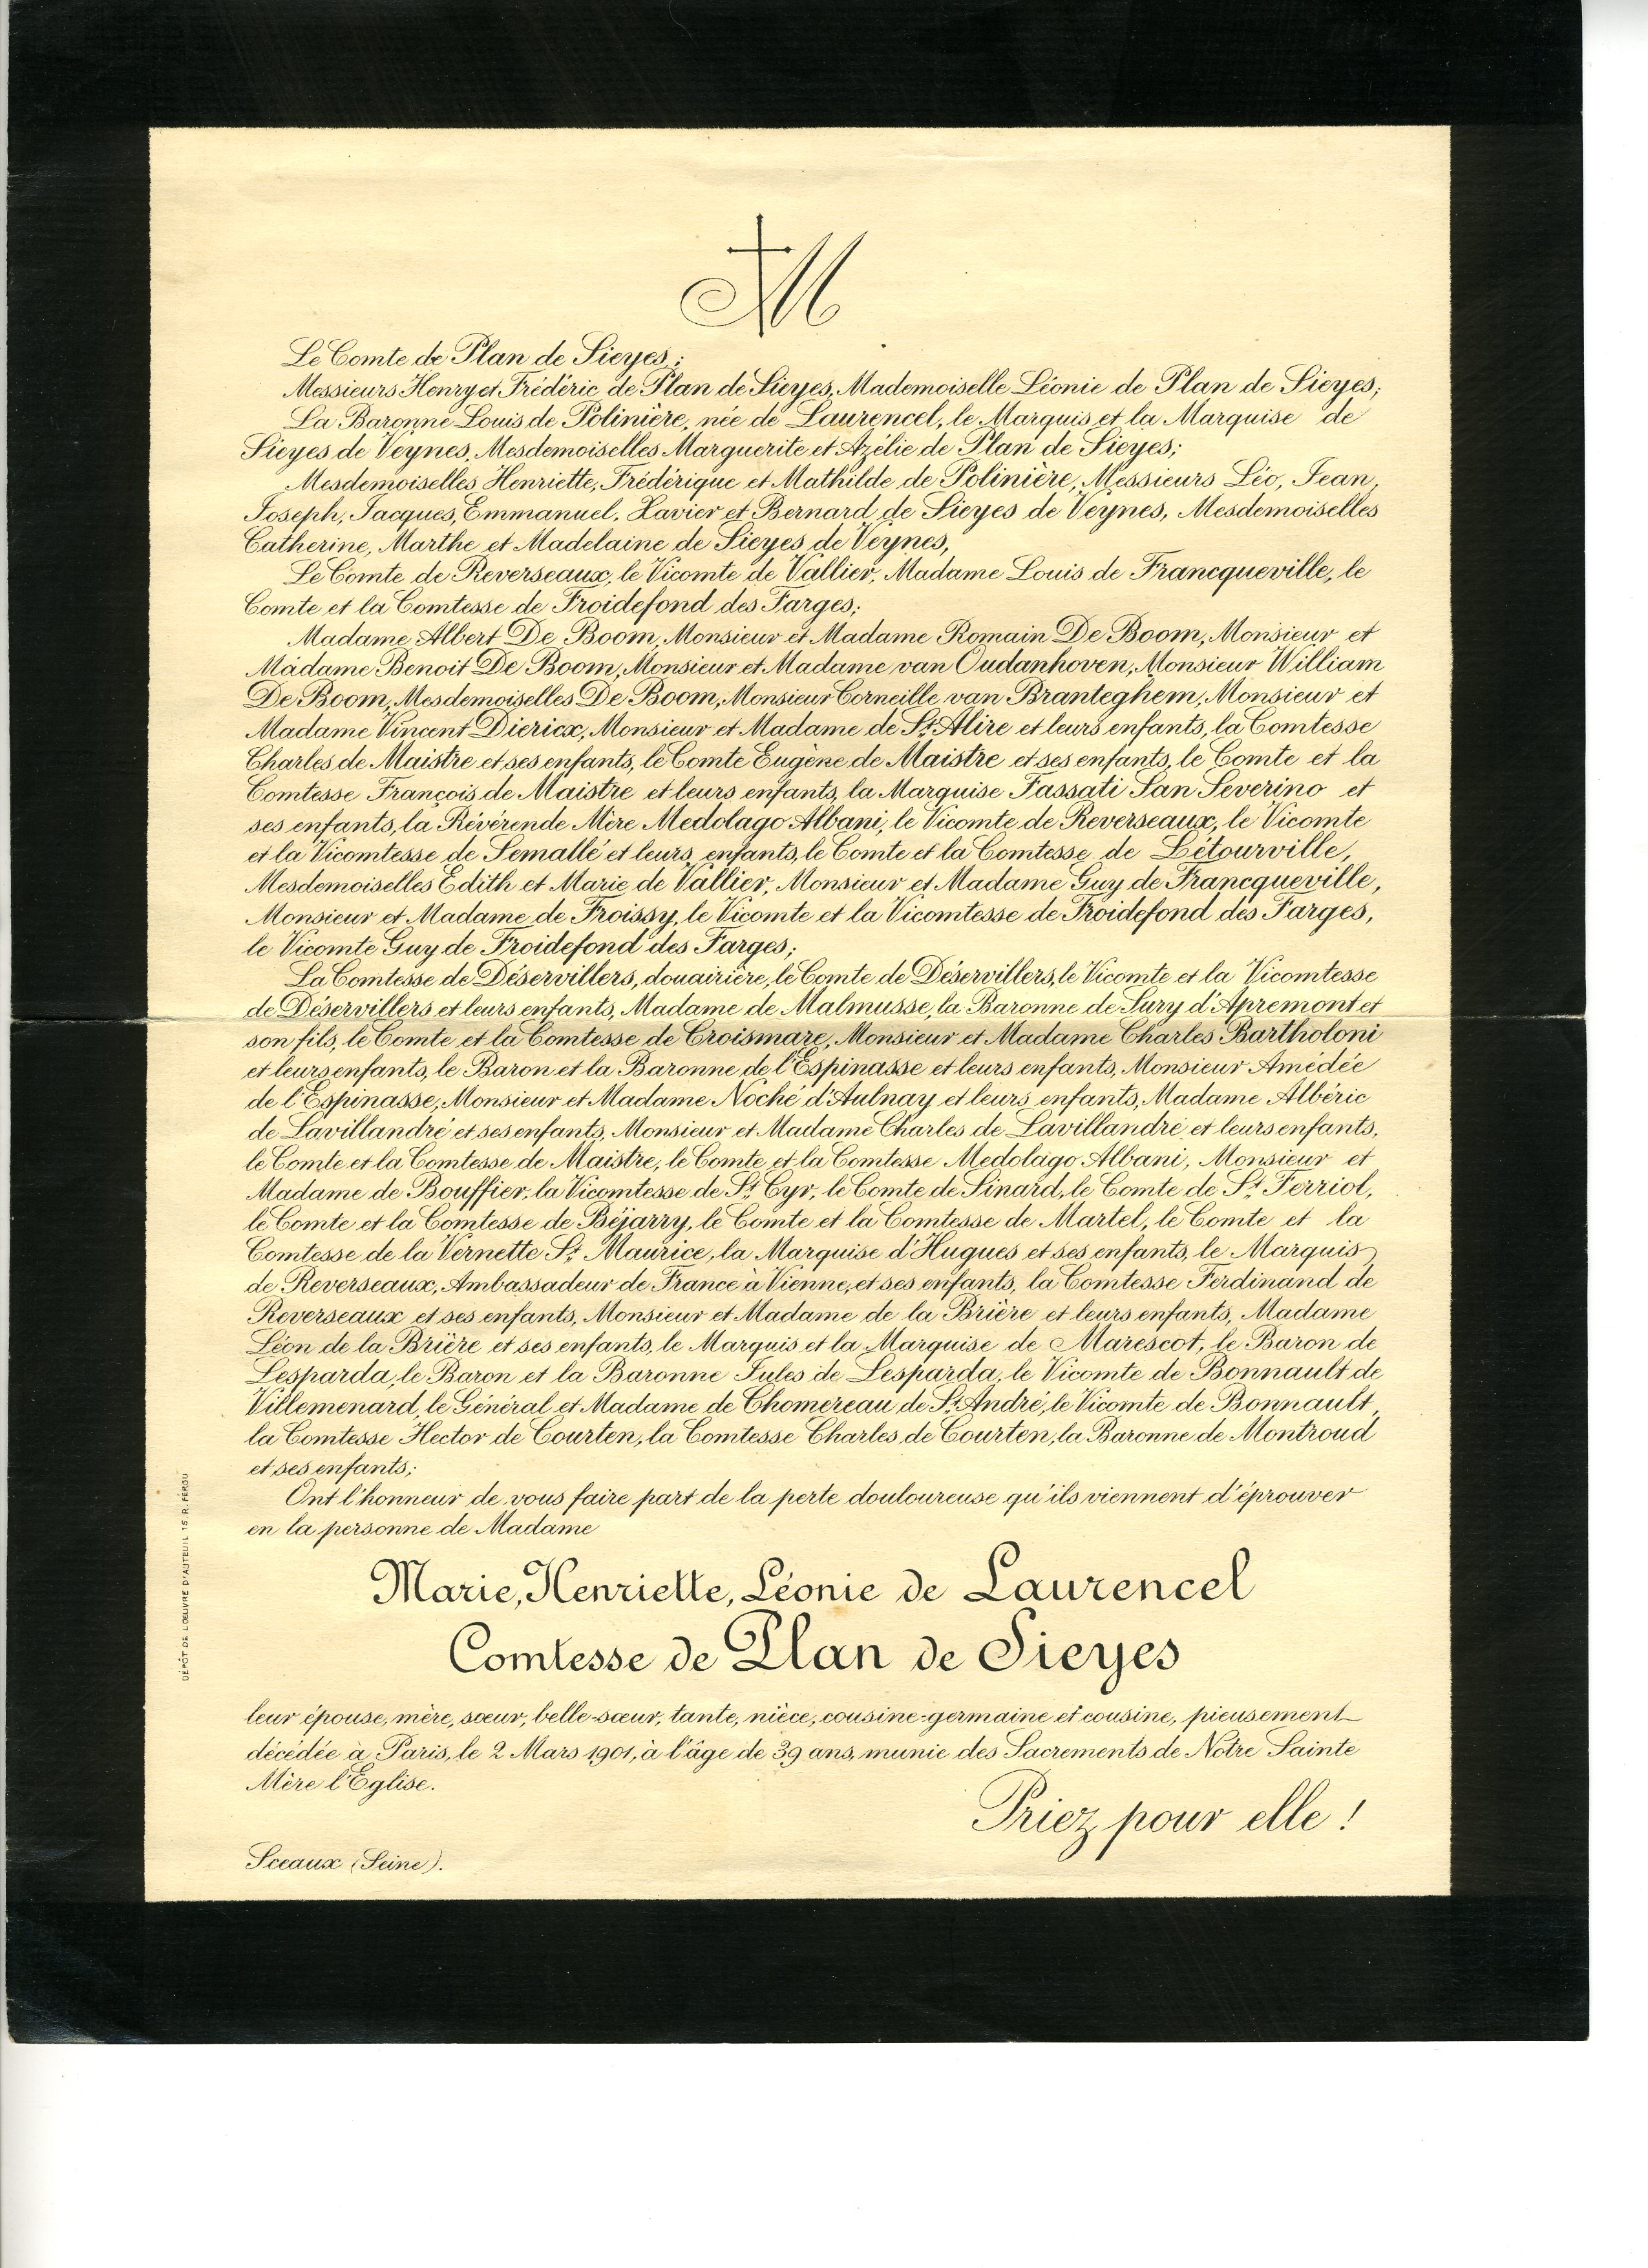 M
Le Comte de Plan de Sieyes;
Messieurs Henry et Frédéric de Plan de Sieyes, Mademoiselle Léonie de Plan de Sieyes;
La Baronne Louis de Polinière, née de Laurencel, le Marquis et la Marquise de
Sieyes de Veynes, Mesdemoiselles Marguerite et Azélie de Plan de Sieyes;
Mesdemoiselles Henriette, Frédérique et Mathilde de Polinière, Messieurs Léo, Jean,
Joseph, Jacques, Emmanuel, Xavier et Bernard de Sieyes de Veynes, Mesdemoiselles
Catherine, Marthe et Madelaine de Sieyes de Veynes,
Le Comte de Reverseaux, le Vicomte de Vallier, Madame Louis de Francqueville, le
Comte et la Comtesse de Froidefond des Farges;
Madame Albert De Boom, Monsieur et Madame Romain De Boom, Monsieur et
Madame Benoit De Boom, Monsieur et Madame van Oudanhoven, Monsieur William
De Boom, Mesdemoiselles De Boom, Monsieur Corneille van Branteghem, Monsieur et
Madame Vincent Diericx, Monsieur et Madame de St Alire et leurs enfants, la Comtesse
Charles de Maistre et ses enfants, le Comte Eugène de Maistre et ses enfants, le Comte et la
Comtesse François de Maistre et leurs enfants, la Marquise Fassati San Severino et
ses enfants, la Révérende Mère Medolago Albani, le Vicomte de Reverseaux, le Vicomte
et la Vicomtesse de Semallé et leurs enfants, le Comte et la Comtesse de Létourville,
Mesdemoiselles Edith et Marie de Vallier, Monsieur et Madame Guy de Francqueville,
Monsieur et Madame de Froissy, le Vicomte et la Vicomtesse de Froidefond des Farges,
le Vicomte Guy de Froidefond des Farges;
La Comtesse de Déservillers, douairière, le Comte de Déservillers, le Vicomte et la Vicomtesse
de Déservillers et leurs enfants, Madame de Malmusse, la Baronne de Sury d'Apremont et
son fils, le Comte et la Comtesse de Croismare, Monsieur et Madame Charles Bartholoni
et leurs enfants, le Baron et la Baronne de l'Espinasse et leurs enfants, Monsieur Amédée
de l'Espinasse, Monsieur et Madame Noché d'Aulnay et leurs enfants, Madame Albéric
de Lavillandré et ses enfants, Monsieur et Madame Charles de Lavillandré et leurs enfants,
le Comte et la Comtesse de Maistre, le Comte et la Comtesse Medolago Albani, Monsieur et
Madame de Bouffier, la Vicomtesse de St Cyr, le Comte de Sinard, le Comte de St Ferriol,
le Comte et la Comtesse de Béjarry, le Comte et la Comtesse de Martel, le Comte et la
Comtesse de la Vernette St Maurice, la Marquise d'Hugues et ses enfants, le Marquis
de Reverseaux, Ambassadeur de France à Vienne, et ses enfants, la Comtesse Ferdinand de
Reverseaux et ses enfants, Monsieur et Madame de la Brière et leurs enfants, Madame
Léon de la Brière et ses enfants, le Marquis et la Marquise de Marescot, le Baron de
Lesparda, le Baron et la Baronne Jules de Lesparda, le Vicomte de Bonnault de
Villemenard, le Général et Madame de Chomereau de St André, le Vicomte de Bonnault,
la Comtesse Hector de Courten, la Comtesse Charles de Courten, la Baronne de Montroud
et ses enfants;
Ont l'honneur de vous faire part de la perte douloureuse qu'ils viennent d'éprouver
en la personne de Madame
Marie, Henriette, Léonie de Laurencel
Comtesse de Plan de Sieyes
leur épouse, mère, sœur, belle-sœur, tante, nièce, cousine-germaine et cousine, pieusement
décédée à Paris, le 2 Mars 1901, à l'âge de 39 ans, munie des Sacrements de Notre Sainte
Mère l'Eglise.
Priez pour elle !
Sceaux (Seine).
DÉPÔT DE L'ŒUVRE D'AUTEUIL 15. R. FÉROU